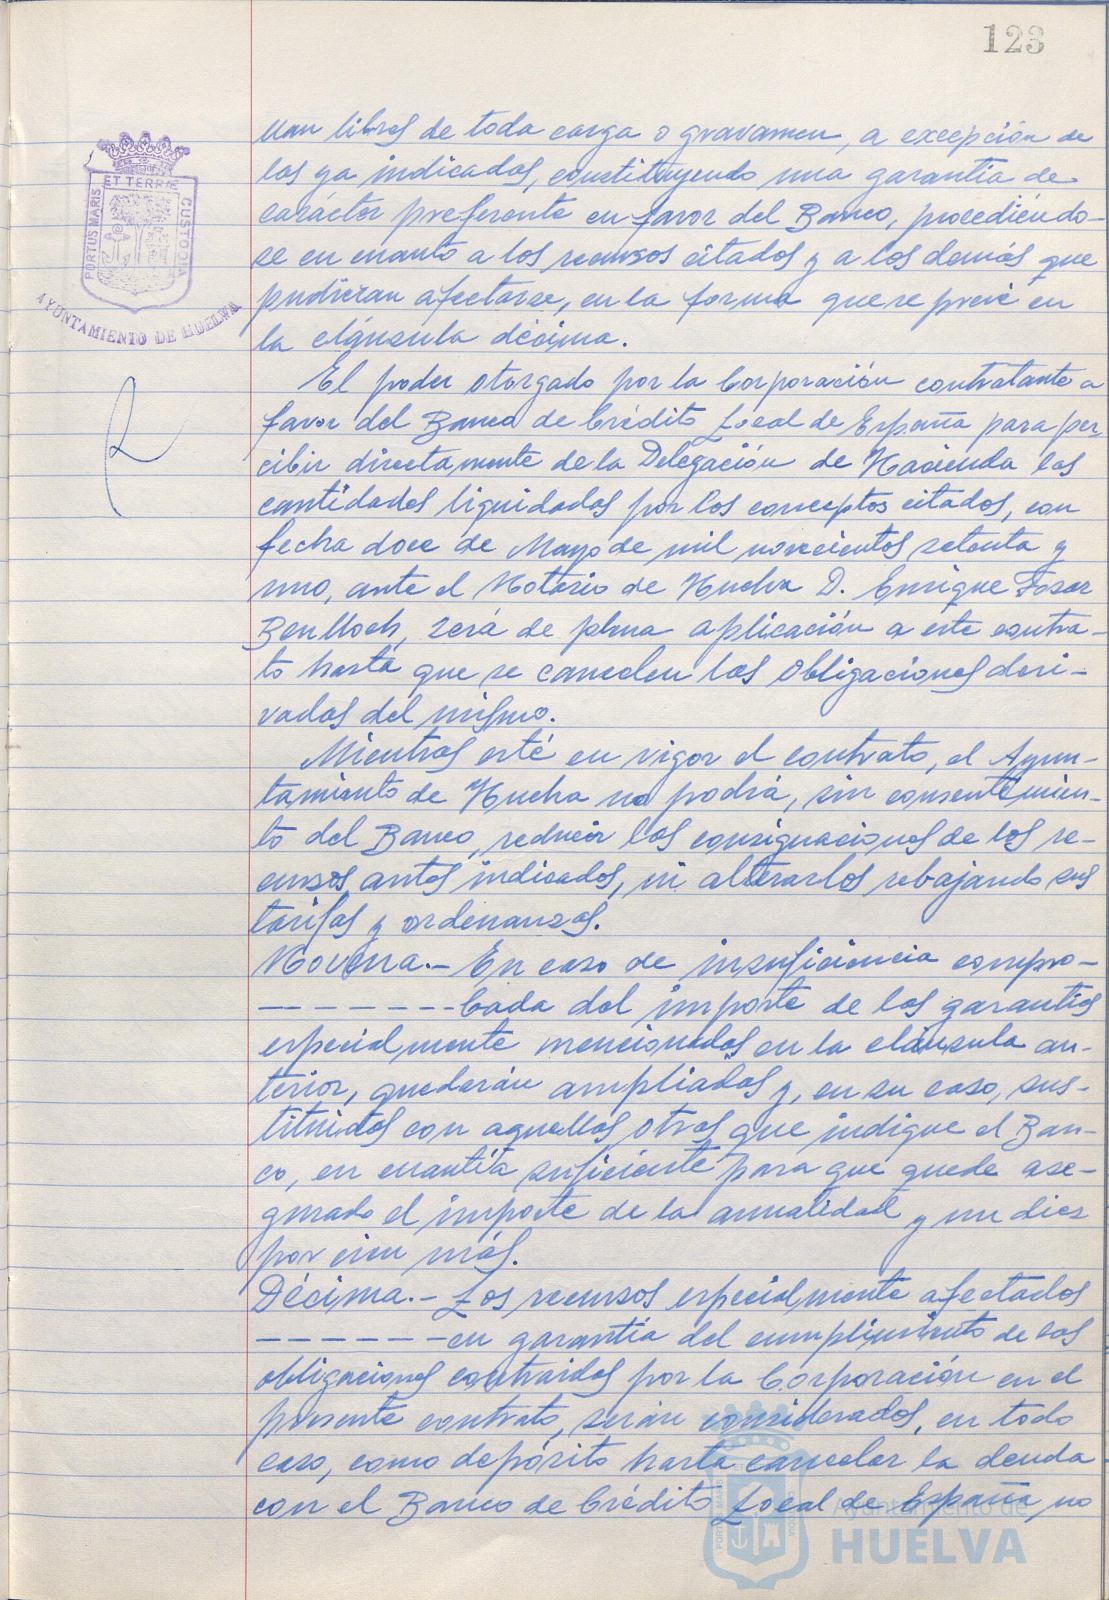 123
PORTUS MARIS
ET TERRÆ
CUSTODIA
AYUNTAMIENTO DE HUELVA
libres de toda carga o gravamen, a excepción de
los ya indicados, constituyendo una garantía de
carácter preferente en favor del Banco, procediéndo-
se en cuanto a los recursos citados y a los demás que
pudieran afectarse, en la forma que se prevé en
la cláusula décima.
El poder otorgado por la Corporación contratante a
favor del Banco de Crédito Local de España para per
cibir directamente de la Delegación de Hacienda las
cantidades liquidadas por los conceptos citados, con
fecha doce de Mayo de mil novecientos setenta y
uno, ante el Notario de Huelva D. Enrique Fosar
Benlloch, será de plena aplicación a este contra-
to hasta que se cancelen las obligaciones deri-
vadas del mismo.
Mientras esté en vigor el contrato, el Ayun-
tamiento de Huelva no podrá, sin consentimien-
to del Banco, reducir las consignaciones de los re-
cursos antes indicados, ni alterarlos rebajando sus
tarifas y ordenanzas.
Novena.- En caso de insuficiencia compro-
-------bada del importe de las garantías
especialmente mencionadas en la cláusula an-
terior, quedarán ampliadas y, en su caso, sus-
tituidas con aquellas otras que indique el Ban-
co, en cuantía suficiente para que quede ase-
gurado el importe de la anualidad y un diez
por cien más.
Décima.- Los recursos especialmente afectados
------en garantía del cumplimiento de las
obligaciones contraidas por la Corporación en el
presente contrato, serán considerados, en todo
caso, como depósito hasta cancelar la deuda
con el Banco de Crédito Local de España, no
Ayuntamiento de
HUELVA